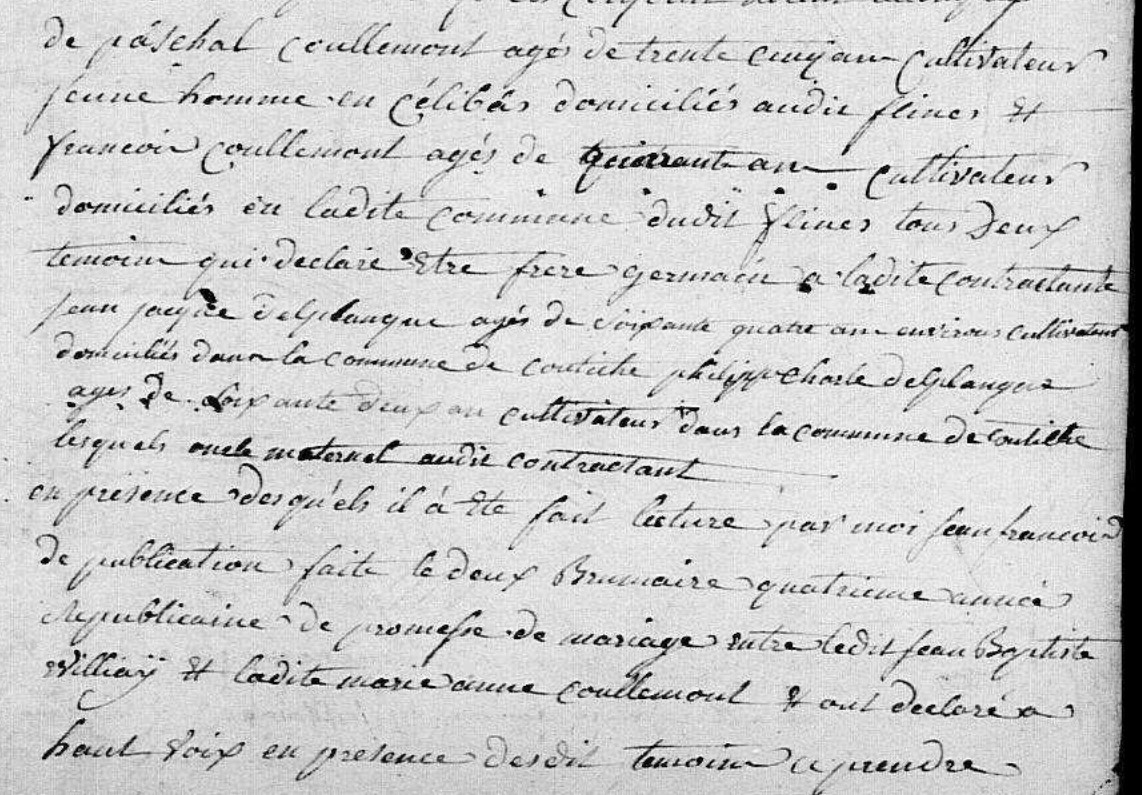 de pâschal Coullemont agés de trente cinq an Cultivateur
jeune homme en Célibâs domiciliés audit flines &
francois Coullemont agés de quarante an Cultivateur
domiciliés en ladite Commune dudit flines tous Deux
temoin qui declare Etre frere germain a ladite Contractante
jean jacque Delplanque agés de Soixante quatre an environs Cultivateur
domiciliés dans la Commune de Coutiche philippe Charle Delplanque
ages de Soixante deux an Cultivateur dans la Commune de Coutiche
lesquels oncle maternel audit Contractant
en présence desquels il à Eté fait lecture par moi jean francois
de publication faite le deux Brumaire quatrieme année
Republicaine de promesse de mariage entre ledit jean Baptiste
& ladite marie anne Coullemont & ont declaré a
haut Voix en présence desdit temoin ce prendre